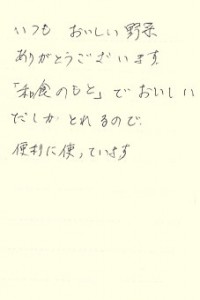 いつも おいしい野菜
ありがとうございます。
「和食のもと」でおいしい
だしが とれるので、
便利に使っています